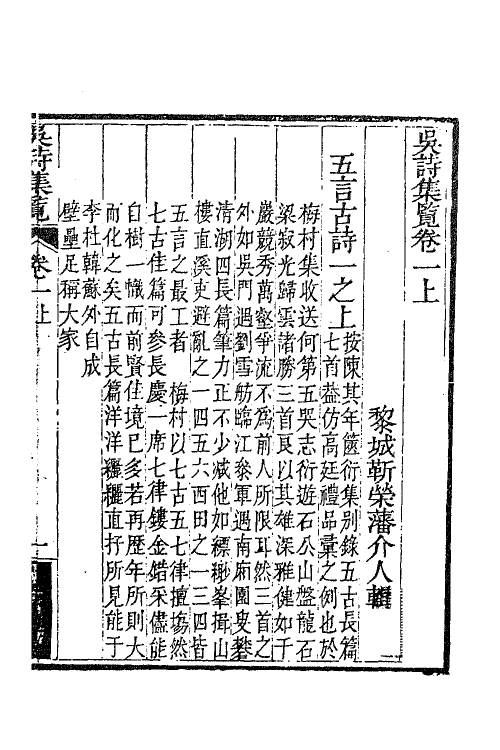 吳詩集覽卷一上
黎城靳榮藩介人輯
五言古詩一之上
按陳其年篋衍集别錄五古長篇
七首葢仿高廷禮品彙之例也於
梅村集收送何第五哭志衍遊石公山盤龍石
梁寂光歸雲諸勝三首良以其雄深雅健如千
巖競秀萬壑爭流不為前人所限耳然三首之
外如吳門遇劉雪舫臨江叅軍遇南廂園叟礬
清湖四長篇筆力正不少減他如縹緲峯揖山
樓直溪吏避亂之一四五六西田之一三四皆
五言之最工者　梅村以七古五七律擅塲然
七古佳篇可參長慶一席七律鏤金錯采儘能
自樹一幟而前賢佳境已多若再歷年所則大
而化之矣五古長篇洋洋纚纚直抒所見能于
李杜韓蘇外自成
壁壘足稱大家
吳詩集覽
卷一上
一